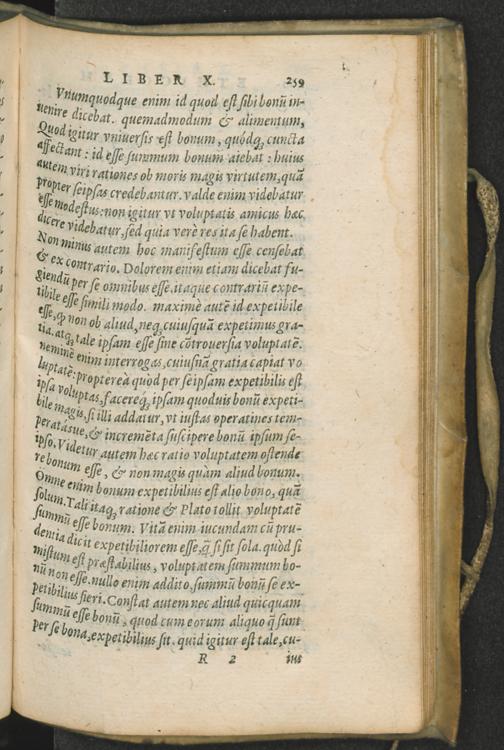 LIBER X. 259
Vnumquodque enim id quod est sibi bonū in-
uenire dicebat. quemadmodum & alimentum,
Quod igitur vniuersis est bonum, quódq; cuncta
affectant: id esse summum bonum aiebat: huius
autem viri rationes ob moris magis virtutem, quā
propter seipsas credebantur. valde enim videbatur
esse modestus: non igitur vt voluptatis amicus hæc
dicere videbatur, sed quia verè res ita se habent.
Non minus autem hoc manifestum esse censebat
& ex contrario. Dolorem enim etiam dicebat fu-
giendū per se omnibus esse. itaque contrariū expe-
tibile esse simili modo. maximè autē id expetibile
esse, q; non ob aliud, neq; cuiusquā expetimus gra-
tia. atq; tale ipsam esse sine cōtrouersia voluptatē.
neminē enim interrogas, cuiusnā gratia capiat vo
luptatē: propterea quòd per seipsam expetibilis est
ipsa voluptas, facereq; ipsam quoduis bonū expeti-
bile magis, si illi addatur, vt iustas operatines tem-
peratasue, & incremēta suscipere bonū ipsum se-
ipso. Videtur autem hæc ratio voluptatem ostende
re bonum esse, & non magis quàm aliud bonum.
Omne enim bonum expetibilius est alio bono, quā
solum. Tali itaq; ratione & Plato tollit voluptatē
summū esse bonum. Vitā enim iucundam cū pru-
dentia dicit expetibiliorem esse, q̃ si sit sola. quòd si
mistum est præstabilius, voluptatem summum bo-
nū non esse. nullo enim addito, summū bonū se ex-
petibilius fieri. Constat autem nec aliud quicquam
summū esse bonū, quod cum eorum aliquo q̃ sunt
per se bona, expetibilius sit. quid igitur est tale, cu-
R 2 ius